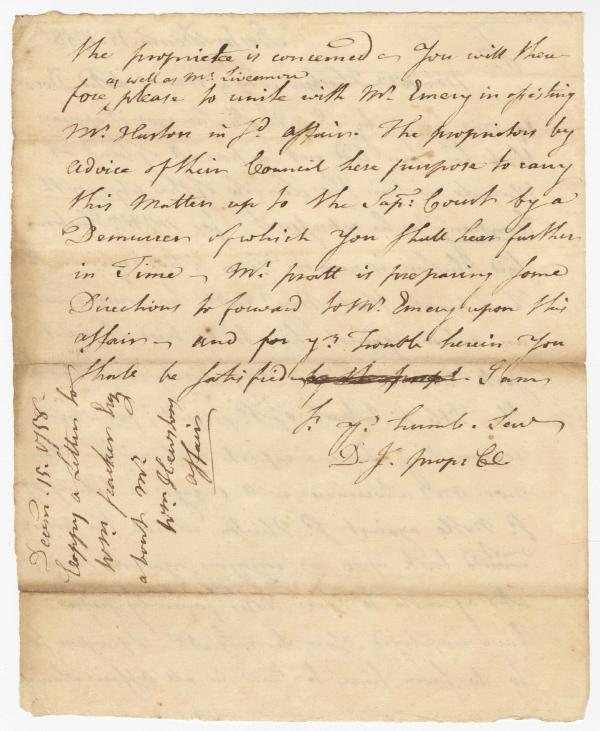 the propriete is concerned - You will there-
fore, please to unite with Mr. Emery in assisting
as well as Mr. Livermore
Mr. Huston in sd. affair. The proprietors by
advice of their Council here purpose to carry
this Matter up to the Supr. Court by a
Demurrer of which You shall hear further
in Time - Mr. pratt is preparing some
Directions to forward to Mr. Emery upon this
affair - and for yr. Trouble herein You
shall be satisfied I am
Sr. yr. humb. Serv
D. J. propr Cl
Decem. 15. 1758
Coppy a Letter to
Wm. parker Esq
about Mr.
Wm. Hewston
affair